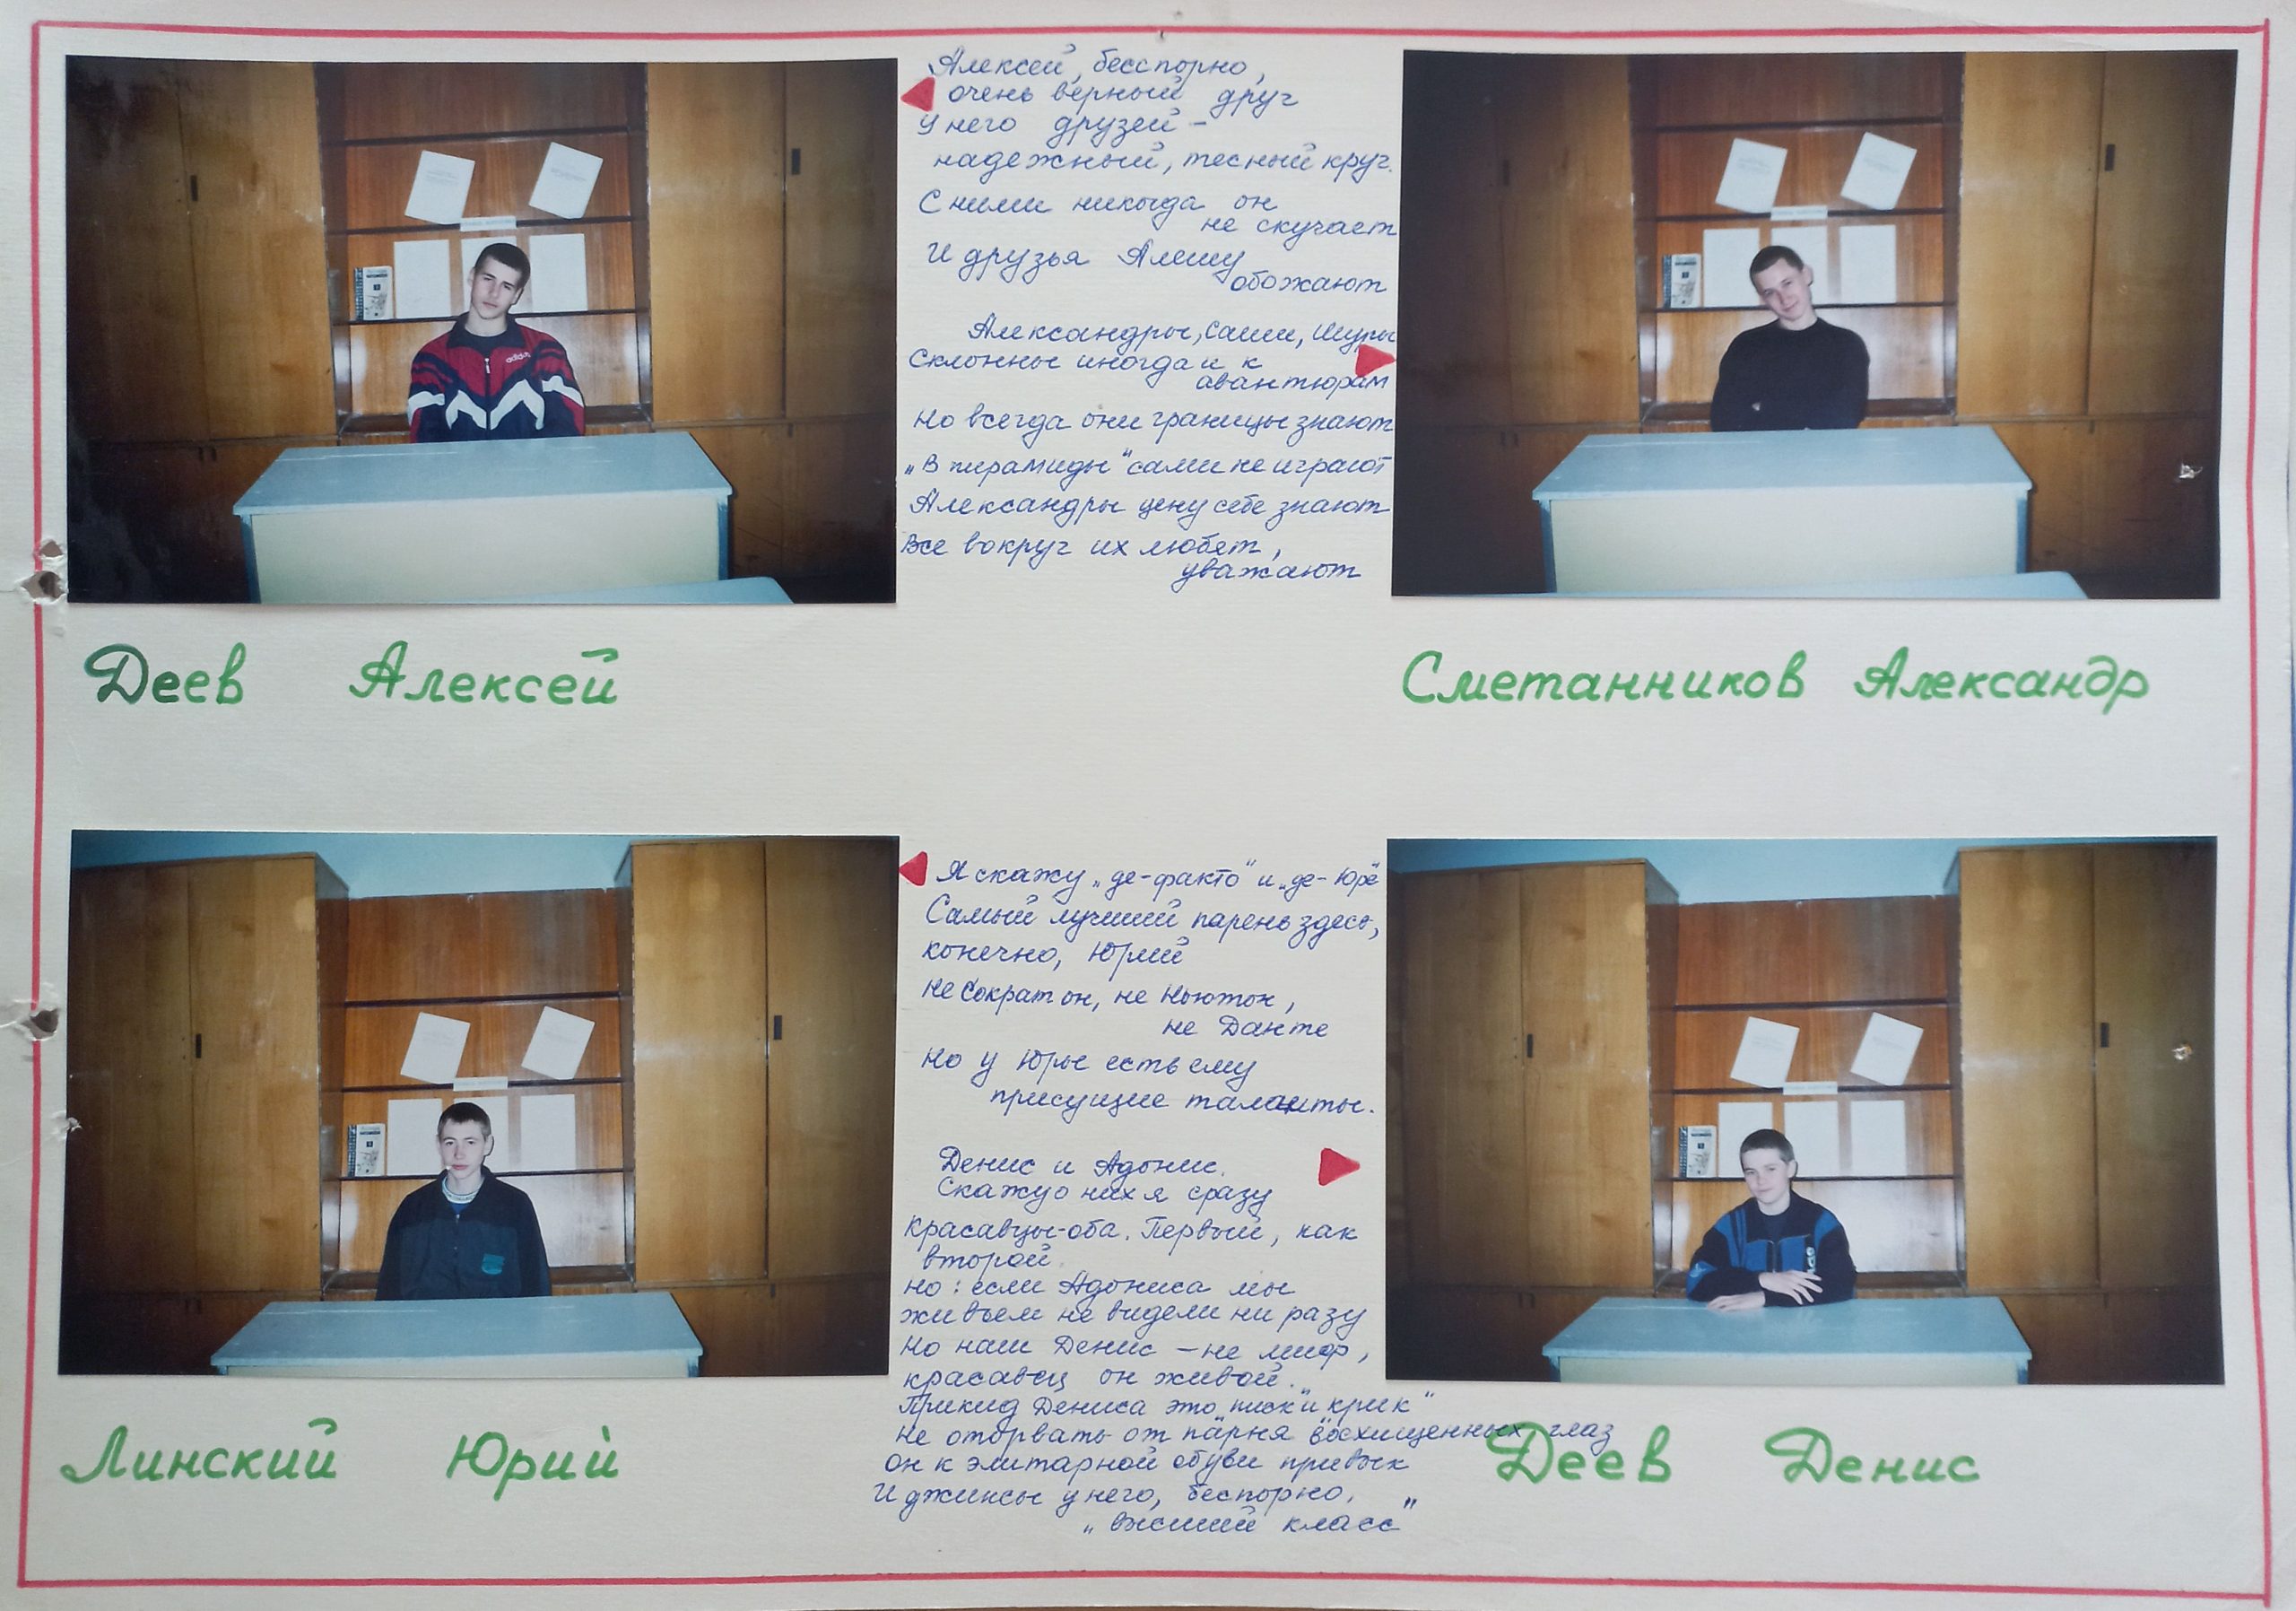 Алексей, бесспорно,
очень верный друг
У него друзей -
надежный, тесный круг.
С ними никогда он
не скучает
И друзья Алешу
обожают
Александры, Саши, Шуры
Склонны иногда и к
авантюрам
Но всегда они границы знают
„В пирамиды" сами не играют
Александры цену себе знают
Все вокруг их любят,
уважают
Деев Алексей
Сметанников Александр
Я скажу „де-факто" и „де-юре"
Самый лучший парень здесь,
конечно, Юрий
Не Сократ он, не Ньютон,
не Данте
Но у Юры есть ему
присущие таланты.
Денис и Адонис.
Скажу о них я сразу
Красавцы-оба. Первый, как
второй.
Но: если Адониса мы
живьем не видели ни разу
Но наш Денис - не миф,
красавец он живой.
Прикид Дениса это „писк" и крик"
Не оторвать от парня восхищенных глаз
Он к элитарной обуви привык
И джинсы у него, беспорно,
„высший класс"
Линский Юрий
Деев Денис